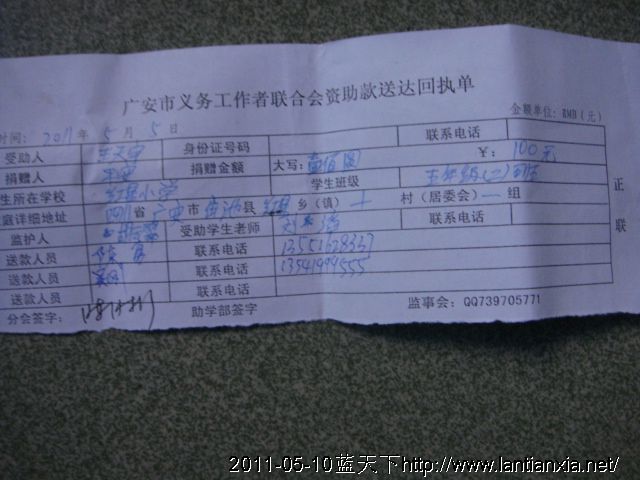 广安市义务工作者联合会资助款送达回执单
时间: 2011 年 5 月 5 日 金额单位: RMB (元)
受助人 身份证号码 联系电话
捐赠人 捐赠金额 大写: 壹佰圆 ¥: 100元
生所在学校 红星小学 学生班级
庭详细地址 四川省 广安市 县 乡(镇) 十 村(居委会) 一 组
监护人 受助学生老师 刘 联系电话
送款人员 联系电话 13551628337
送款人员 联系电话 13541999555
送款人员 联系电话
分会签字: 助学部签字 监事会: QQ739705771
正
联
2011-05-10蓝天下http://www.lantianxia.net/